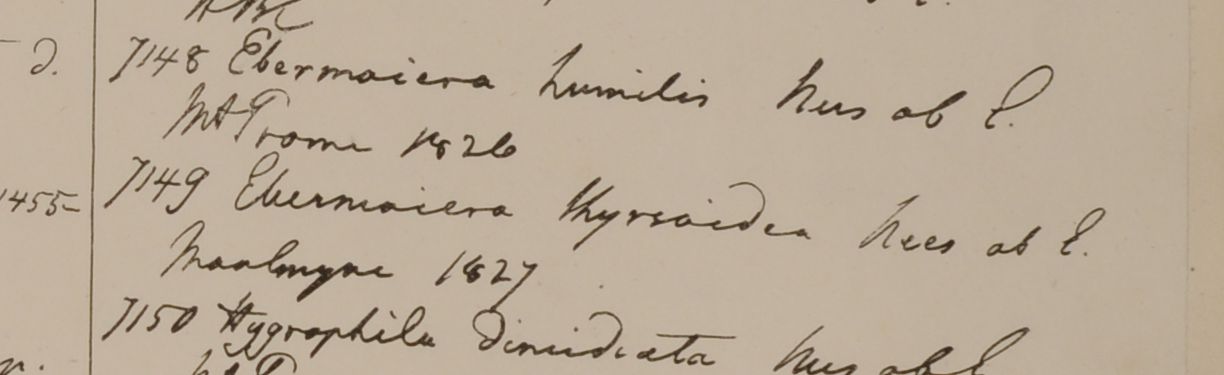 d. 7148 Ebermaiera humilis Nees ab E.
Mt Prome 1826
1455- 7149 Ebermaiera thyrsoidea Nees ab E.
Maulmyne 1827
7150 Hygrophila dimidiata Nees ab E